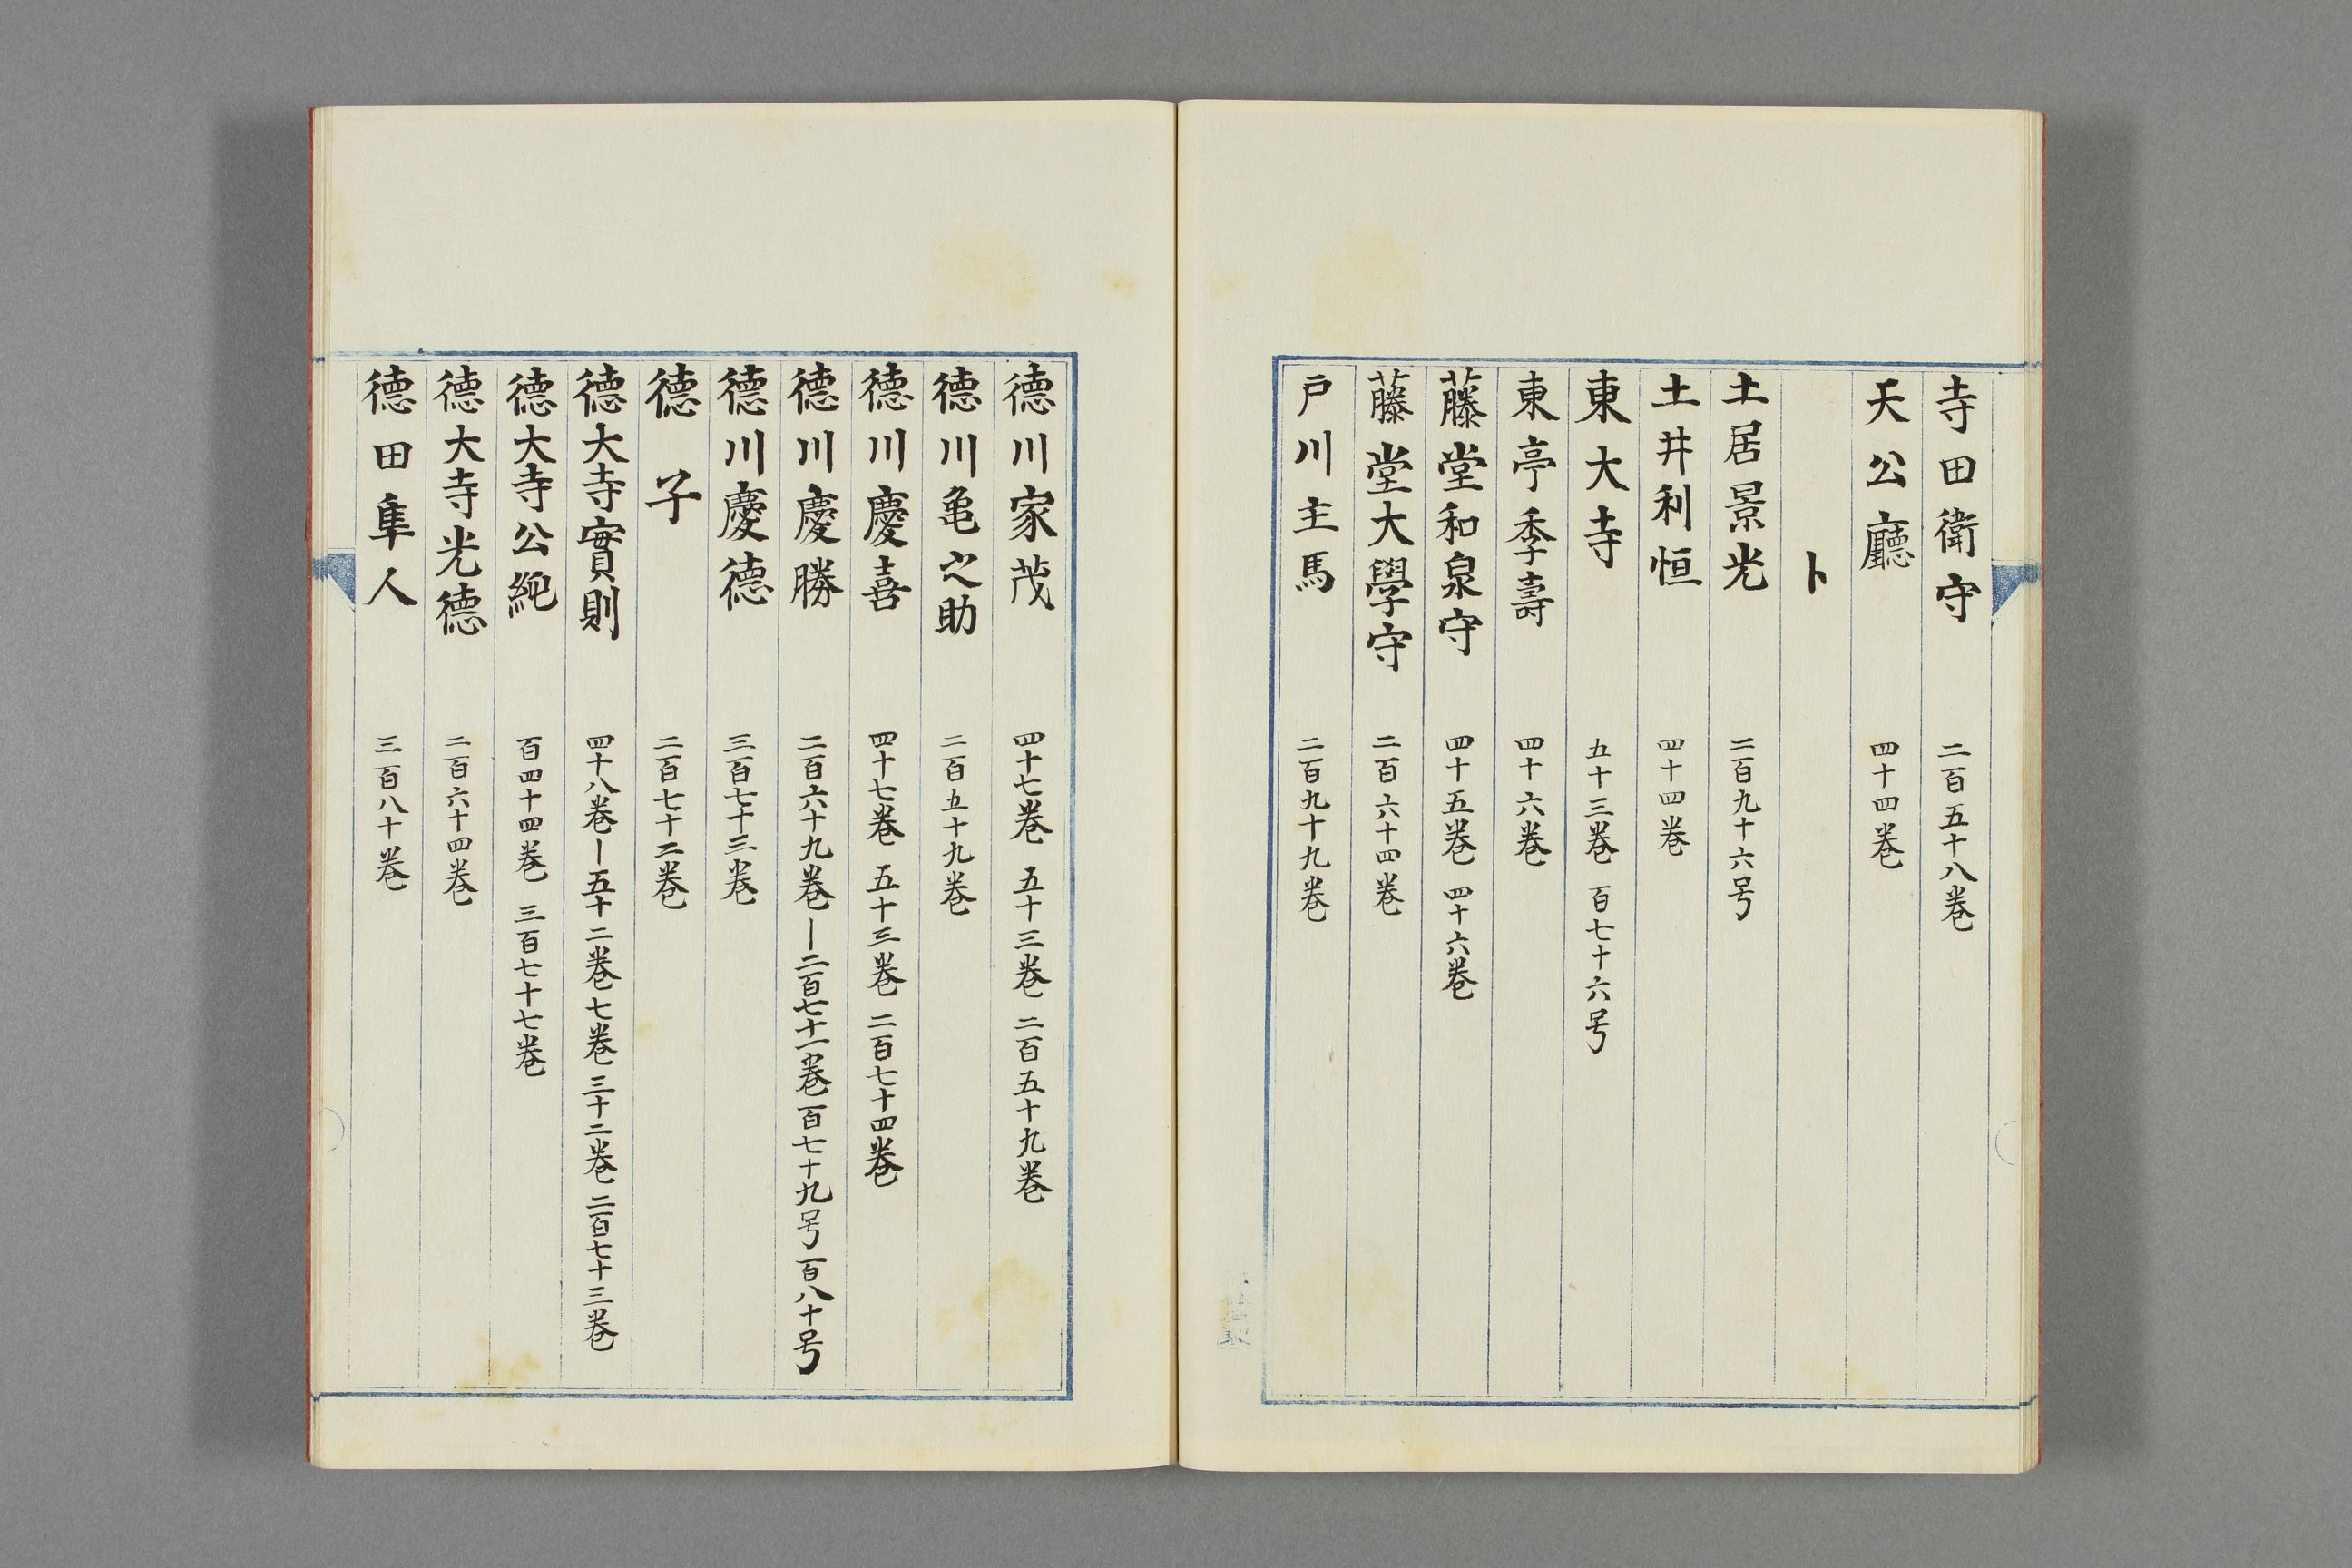 寺田衛守 二百五十八巻
天公廳 四十四巻
ト
土居景光 二百九十六号
土井利恒 四十四巻
東大寺 五十三巻 百七十六号
東亭季壽 四十六巻
藤堂和泉守 四十五巻 四十六巻
藤堂大學守 二百六十四巻
戸川主馬 二百九十九巻
德川家茂 四十七巻 五十三巻 二百五十九巻
德川亀之助 二百五十九巻
德川慶喜 四十七巻 五十三巻 二百七十四巻
德川慶勝 二百六十九巻―二百七十一巻 百七十九号 百八十号
德川慶德 三百七十三巻
德子 二百七十二巻
德大寺實則 四十八巻―五十二巻 七巻 三十二巻 二百七十三巻
德大寺公純 百四十四巻 三百七十七巻
德大寺光德 二百六十四巻
德田隼人 三百八十巻